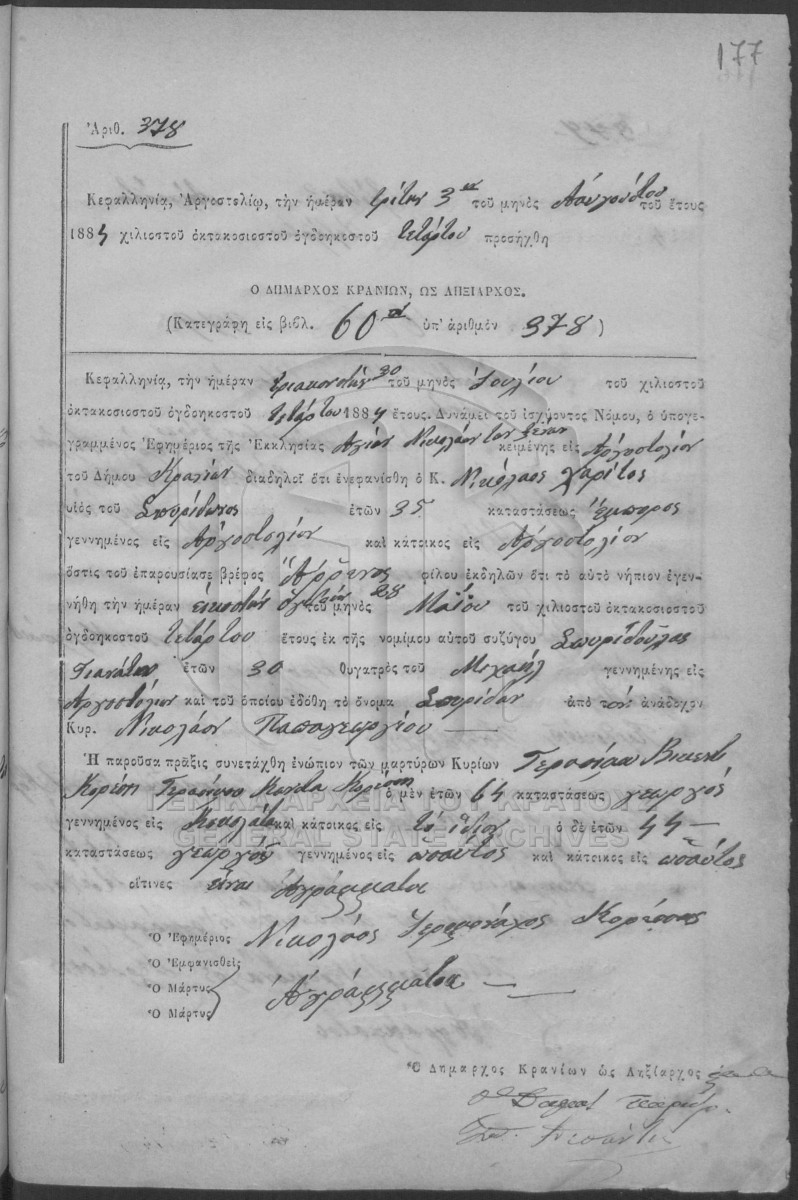 177
Ἀριθ. 378
Κεφαλληνίᾳ, Ἀργοστολίῳ, τὴν ἡμέραν τρίτην 3ην τοῦ μηνὸς Αὐγούστου τοῦ ἔτους
1884 χιλιοστοῦ ὀκτακοσιοστοῦ ὀγδοηκοστοῦ τετάρτου προσήχθη
Ο ΔΗΜΑΡΧΟΣ ΚΡΑΝΙΩΝ, ΩΣ ΛΗΞΙΑΡΧΟΣ.
(Κατεγράφη εἰς βιβλ. 60ον ὑπ' ἀριθμὸν 378)
Κεφαλληνίᾳ, τὴν ἡμέραν τριακοστὴν 30 τοῦ μηνὸς Ἰουλίου τοῦ χιλιοστοῦ
ὀκτακοσιοστοῦ ὀγδοηκοστοῦ τετάρτου 1884 ἔτους. Δυνάμει τοῦ ἰσχύοντος Νόμου, ὁ ὑπογε-
γραμμένος Ἐφημέριος τῆς Ἐκκλησίας Ἁγίου Νικολάου τῶν ξένων κειμένης εἰς Ἀργοστόλιον
τοῦ Δήμου Κρανίων διαδηλοῖ ὅτι ἐνεφανίσθη ὁ Κ. Νικόλαος Χαρίτος
υἱὸς τοῦ Σπυρίδωνος ἐτῶν 35 καταστάσεως ἔμπορος
γεννημένος εἰς Ἀργοστόλιον καὶ κάτοικος εἰς Ἀργοστόλιον
ὅστις τοῦ ἐπαρουσίασε βρέφος Ἄρρενος φίλου ἐκδηλῶν ὅτι τὸ αὐτὸ νήπιον ἐγεν-
νήθη τὴν ἡμέραν εἰκοστὴν ὀγδόην 28 τοῦ μηνὸς Μαΐου τοῦ χιλιοστοῦ ὀκτακοσιοστοῦ
ὀγδοηκοστοῦ τετάρτου ἔτους ἐκ τῆς νομίμου αὐτοῦ συζύγου Σπυριδούλας
ἐτῶν 30 θυγατρὸς τοῦ Μιχαὴλ γεννημένης εἰς
Ἀργοστόλιον καὶ τοῦ ὁποίου ἐδόθη τὸ ὄνομα Σπυρίδων ἀπὸ τὸν ἀνάδοχον
Κυρ. Νικολάον Παπαγεωργίου
Ἡ παροῦσα πρᾶξις συνετάχθη ἐνώπιον τῶν μαρτύρων Κυρίων Γερασίμου
Γερασίμου ὁ μὲν ἐτῶν 64 καταστάσεως γεωργὸς
γεννημένος εἰς καὶ κάτοικος εἰς τὸ ἴδιον ὁ δὲ ἐτῶν 44
καταστάσεως γεωργοῦ γεννημένος εἰς ὡσαύτως καὶ κάτοικος εἰς ὡσαύτως
οἵτινες εἶναι ἀγράμματοι
Ὁ Ἐφημέριος Νικολάος Ἱερομόναχος
Ὁ Ἐμφανισθεὶς
Ὁ Μάρτυς Ἀγράμματοι
Ὁ Μάρτυς
Ὁ Δήμαρχος Κρανίων ὡς Ληξίαρχος
ΓΕΝΙΚΑ ΑΡΧΕΙΑ ΤΟΥ ΚΡΑΤΟΥΣ
GENERAL STATE ARCHIVES